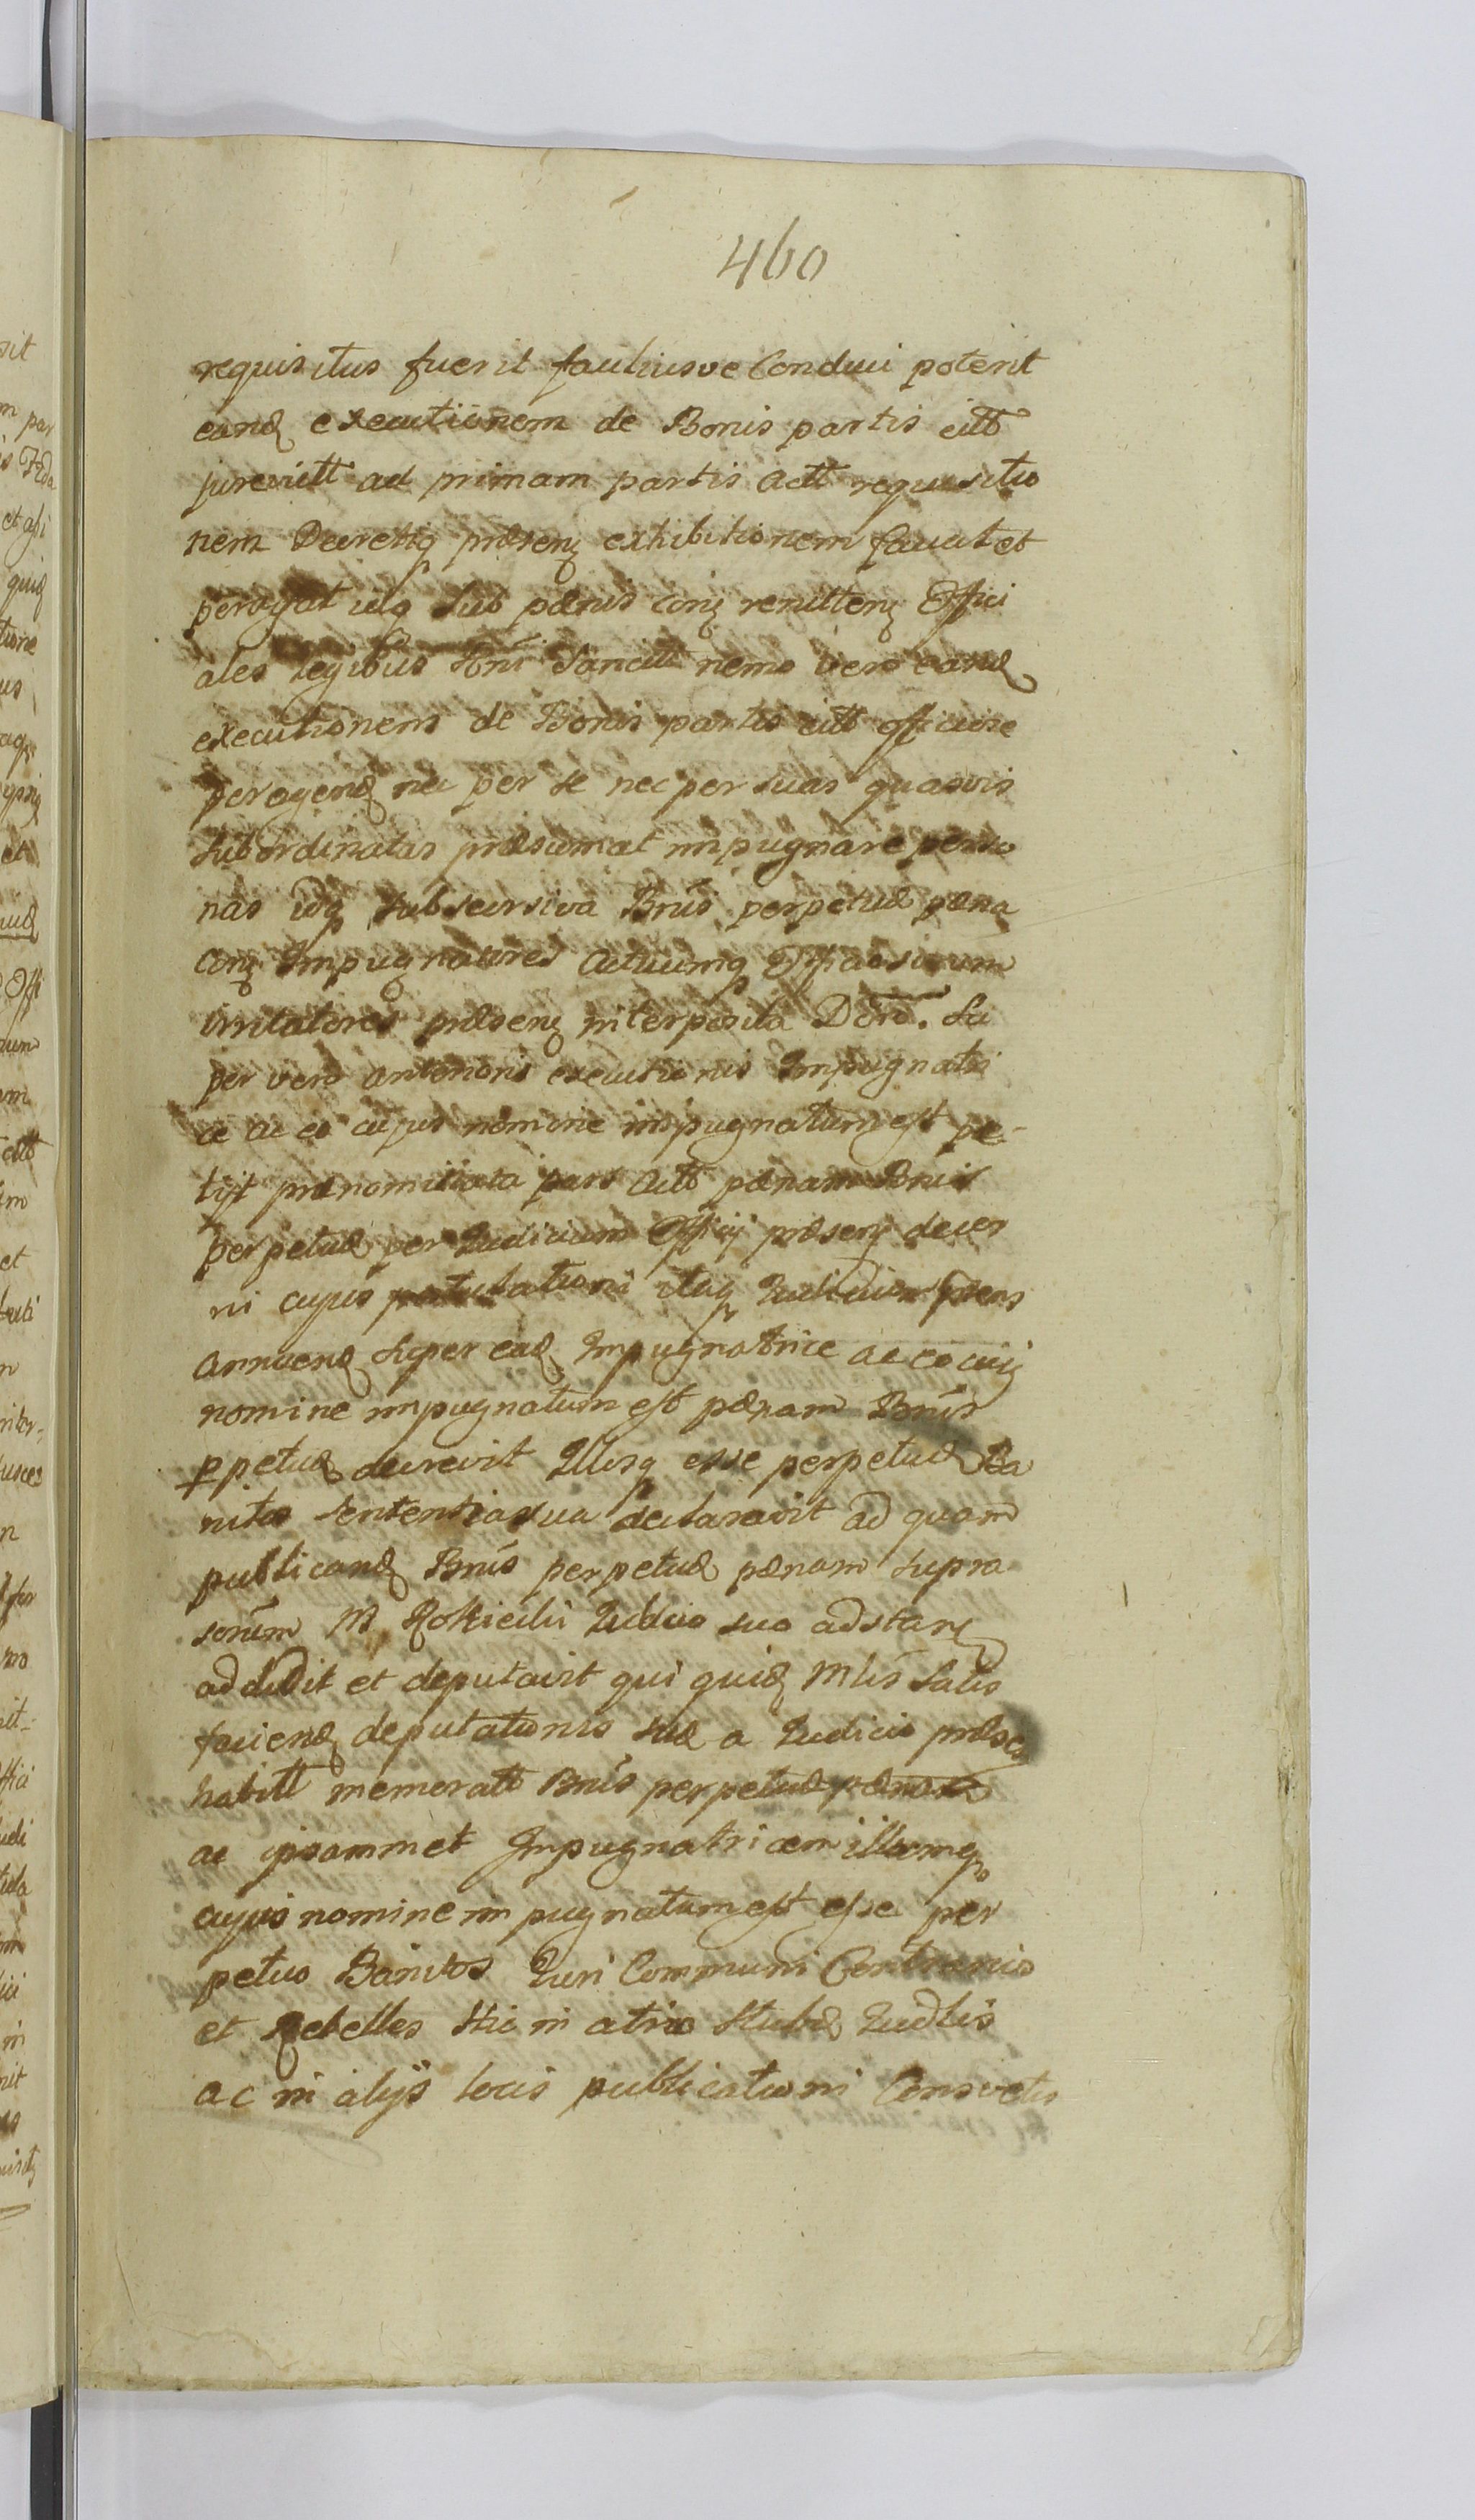 460
requisitus fuerit faciliusve Conduci poterit
eand executionem de Bonis partis citt
jurevictt ad primam partis Actt requisitio
nem Decretiq præsenq exhibitionem faciat et
peragat idq sub pænis conq renittenq Offici
ales legibus Rni Sancitt nemo vero eand
executionem de Bonis partis citt officiose
peragend nec per se nec per suas quasvis
subordinatas præsumat impugnare perso
nas idq sub secusiva Bnis perpetuæ pæna
conq Impugnatores Actuumq Officiosorum
irritatores præsenq interposita Dõnõ. Su
per vero anterioris executionis Impugnatri
ce ac eo cujus nomine impugnatum est pe-
tijt prænominata pars Actt pænam Bnis
perpetuæ per Judicium Officij præsenq decer
ni cujus postulationi itaq Judicium præns
annuend super ead Impugnatrice ac eo cuiq
nomine impugnatum est pænam Bnis
ppetuæ decrevit Illosq esse perpetuo Ba
nitos sententia sua declaravit ad quam
publicand Bnis perpetuæ pænam supra
scriptum M Rokicki Judicio suo adstanq
addidit et deputavit qui quid Mlis Satis
faciend deputationis suæ a Judicio præsenq
habitt memoratt Bnis perpetuæ pænam
ac ipsammet Impugnatricem illumq
cujus nomine impugnatum est esse per
petuo Banitos Juri Communi Contrarios
et Rebelles Hic in atrio Stubæ Judlis
ac in alijs locis publicationi Consvetis